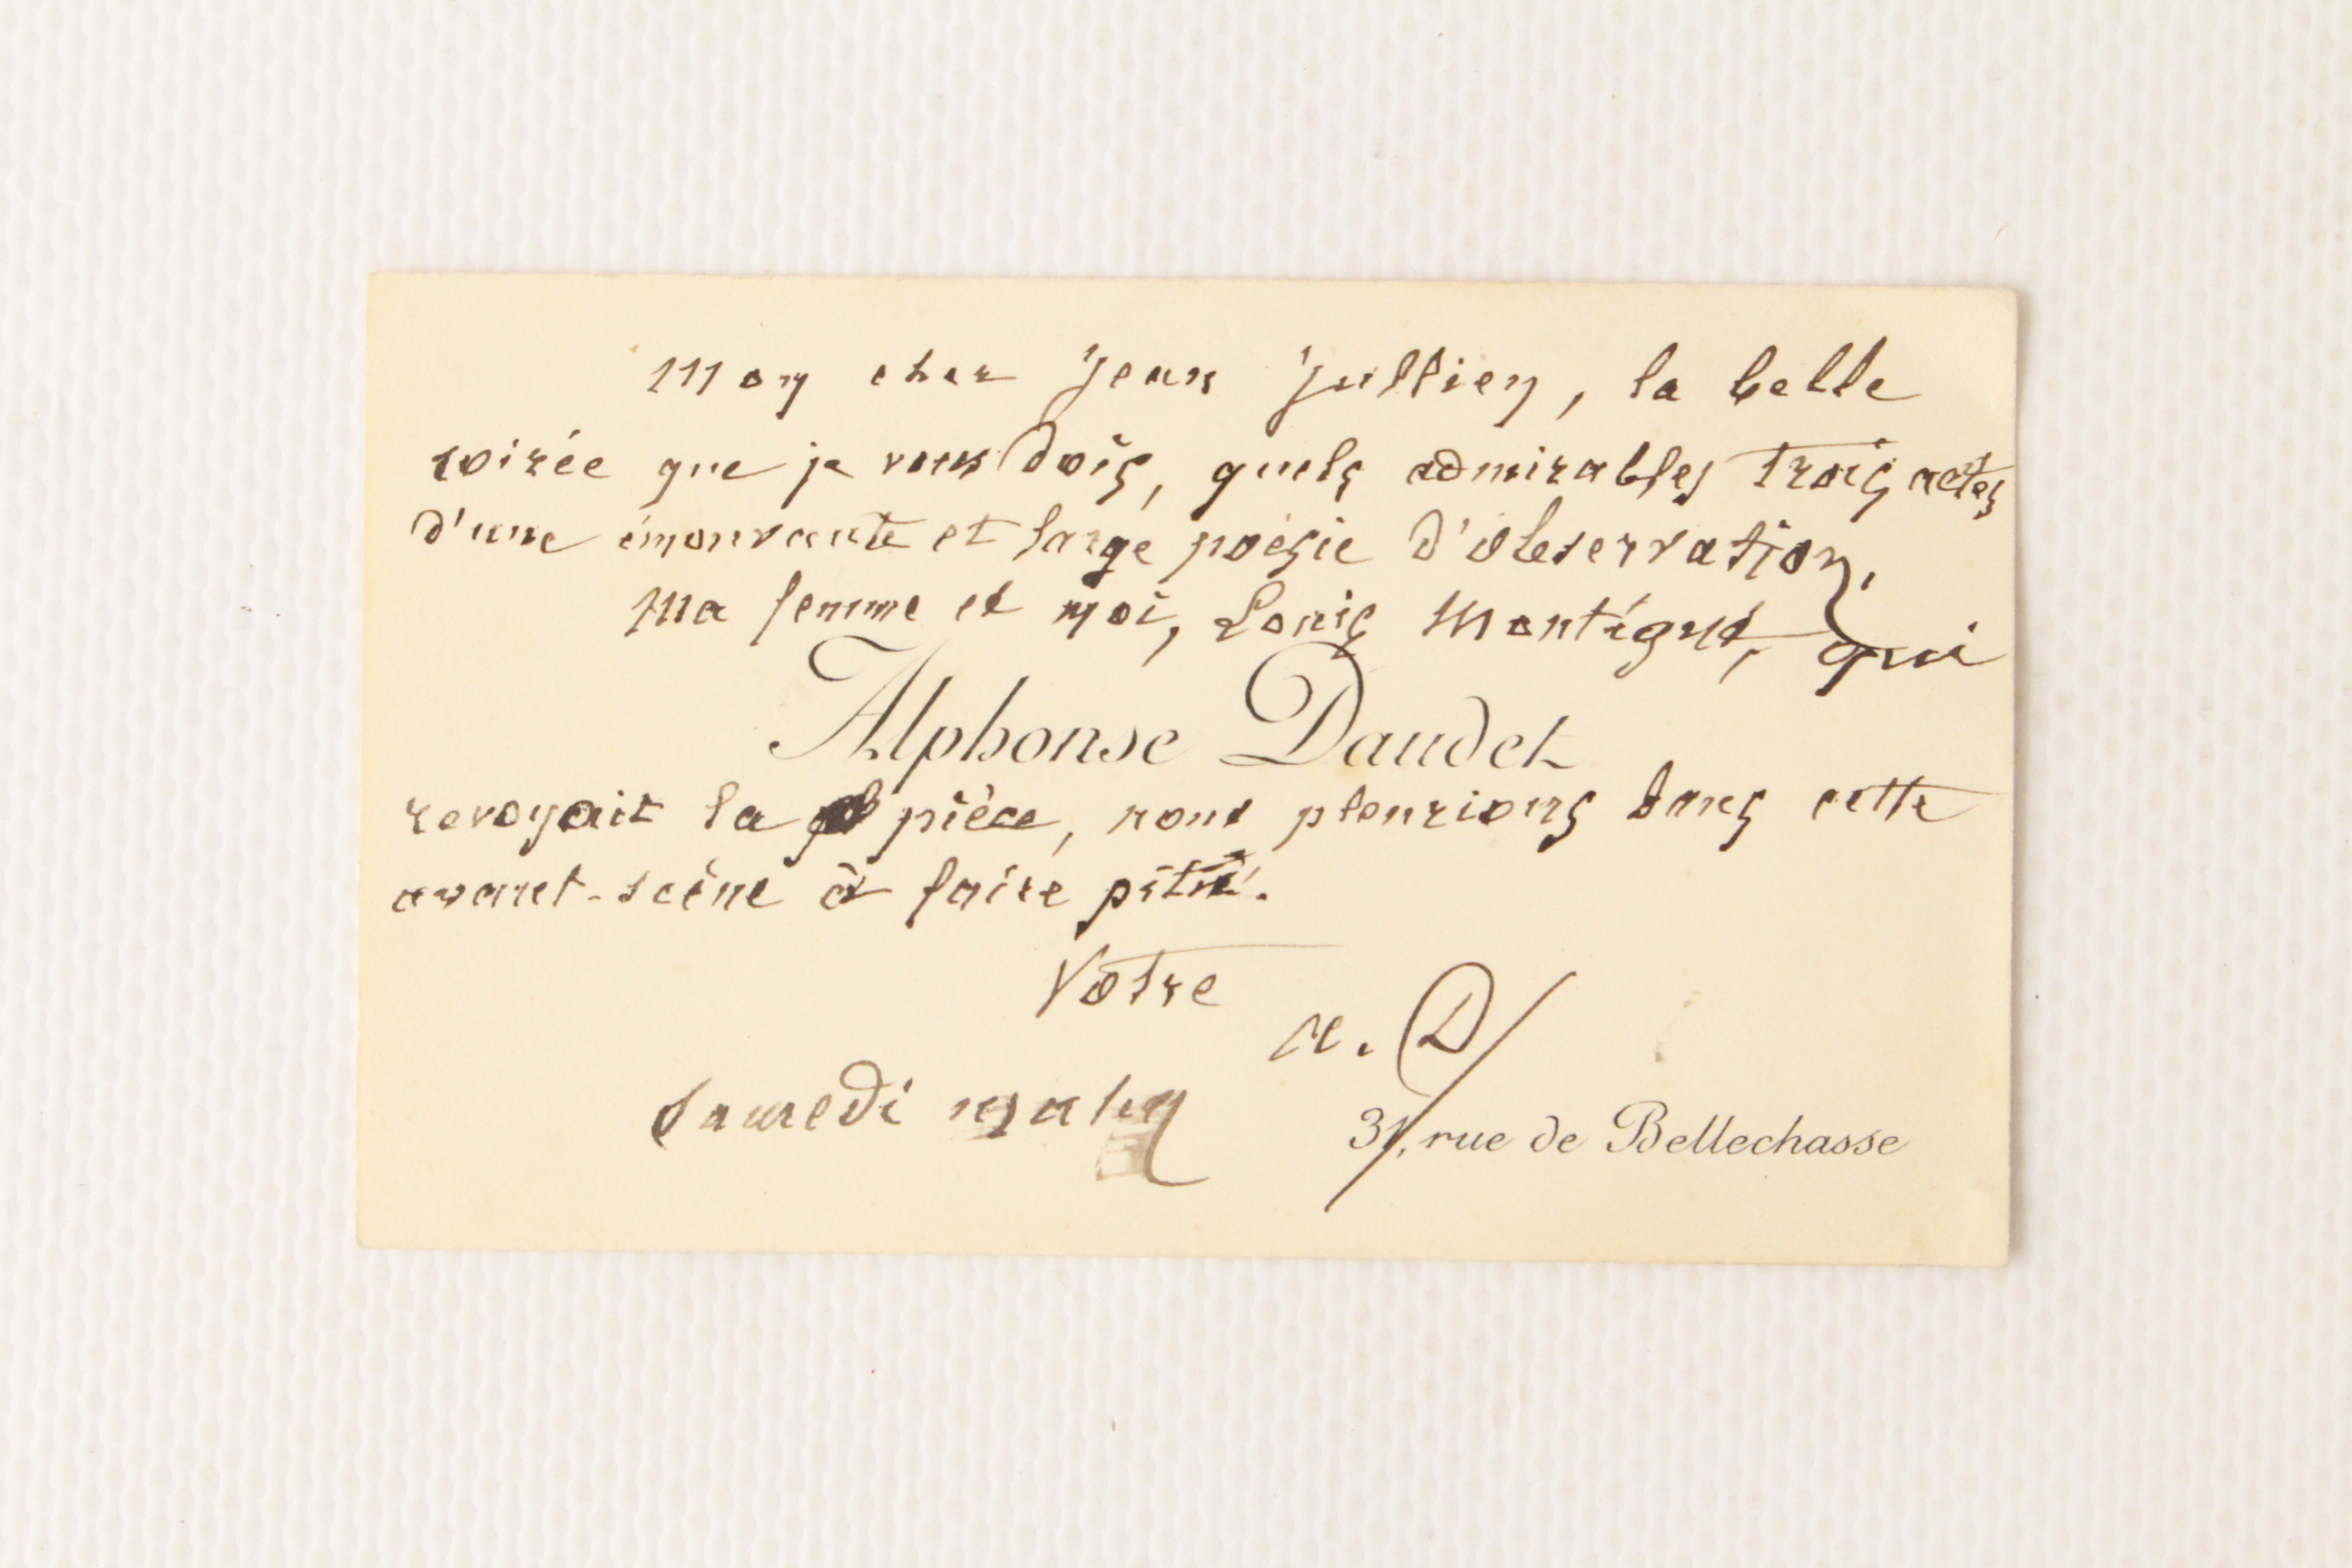 Mon cher Jean Jullien, la belle
soirée que je vous dois, quels admirables trois actes
d'une émouvante et large poésie d'observation.
Ma femme et moi, Louis Montégut, qui
Alphonse Daudet
revoyait la pièce, nous pleurions dans cette
avant-scène à faire pitié.
Votre
A. D
31, rue de Bellechasse
Samedi matin